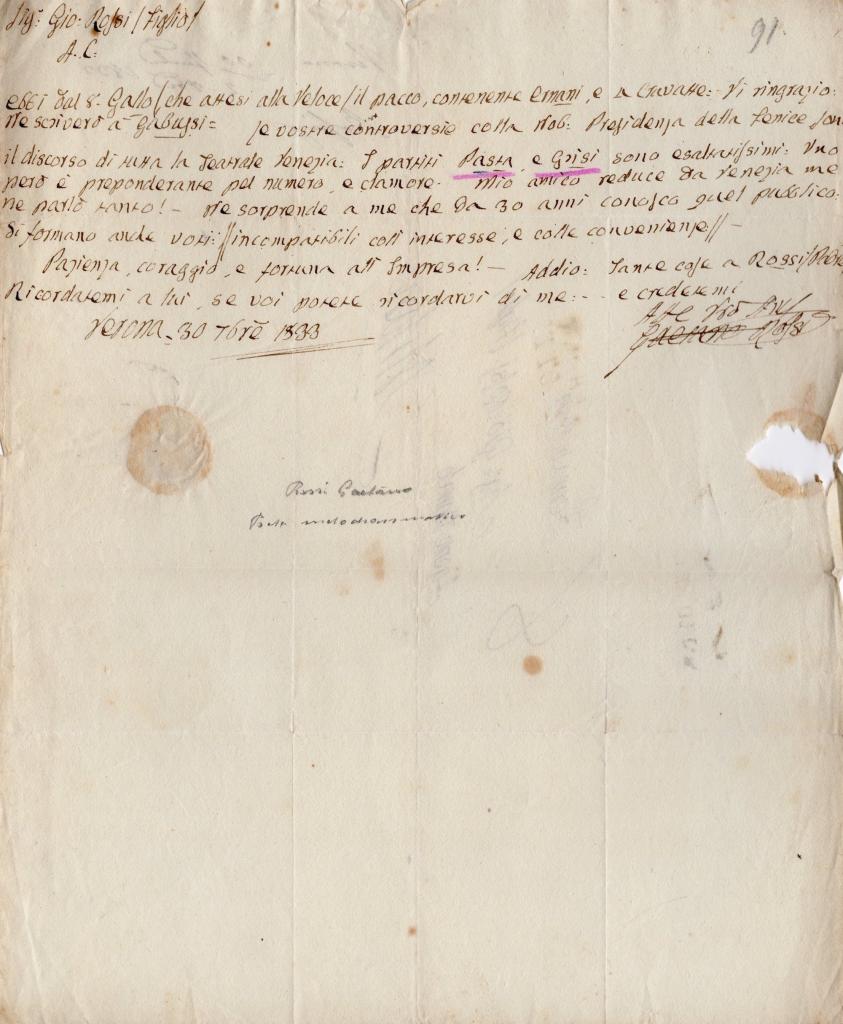 Sigr. Gio: Rossi / Figlio /
A. C.
91.
Ebbi dal Sr. Gallo / che attesi alla Veloce / il pacco, contenente Ernani, e la Cravatte: Vi ringrazio:
Ne scriverò à Gabussi = le vostre controversie colla Nob: Presidenza della Fenice son
il discorso di tutta la Teatrale Venezia: I partiti Pasta, e Grisi sono esaltatissimi: Uno
però è preponderante pel numero, e clamore. Mio amico reduce da Venezia me
ne parlò tanto! - Ne sorprende a me che da 30 anni conosco quel pubblico.
Si formano anche voti: // incompatibili coll'interesse, e colle convenienze // -
Pazienza, coraggio, e fortuna all'Impresa! - Addio: Tante cose a Rossi /
Ricordatemi a lui, se voi potete ricordarvi di me: - - e credetemi
Verona - 30 7bre 1833
Gaetano Rossi
Rossi Gaetano
Poeta melodrammatico